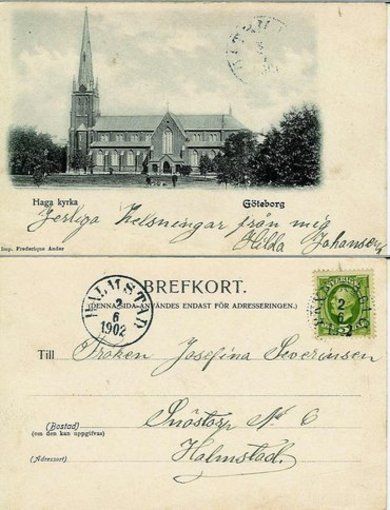 Haga kyrka Göteborg
Jerliga Helsningar från mig
Hilda Johansen
Imp. Frederique Ander
HALMSTAD
2
6
1902
BREFKORT.
(DENNA SIDA ANVÄNDES ENDAST FÖR ADRESSERINGEN.)
Till Fröken Josefina Severinsen
(Bostad)
(om den kan uppgifvas)
Snöstorp No 6
(Adressort)
Halmstad.
SVERIGE
2
6
5